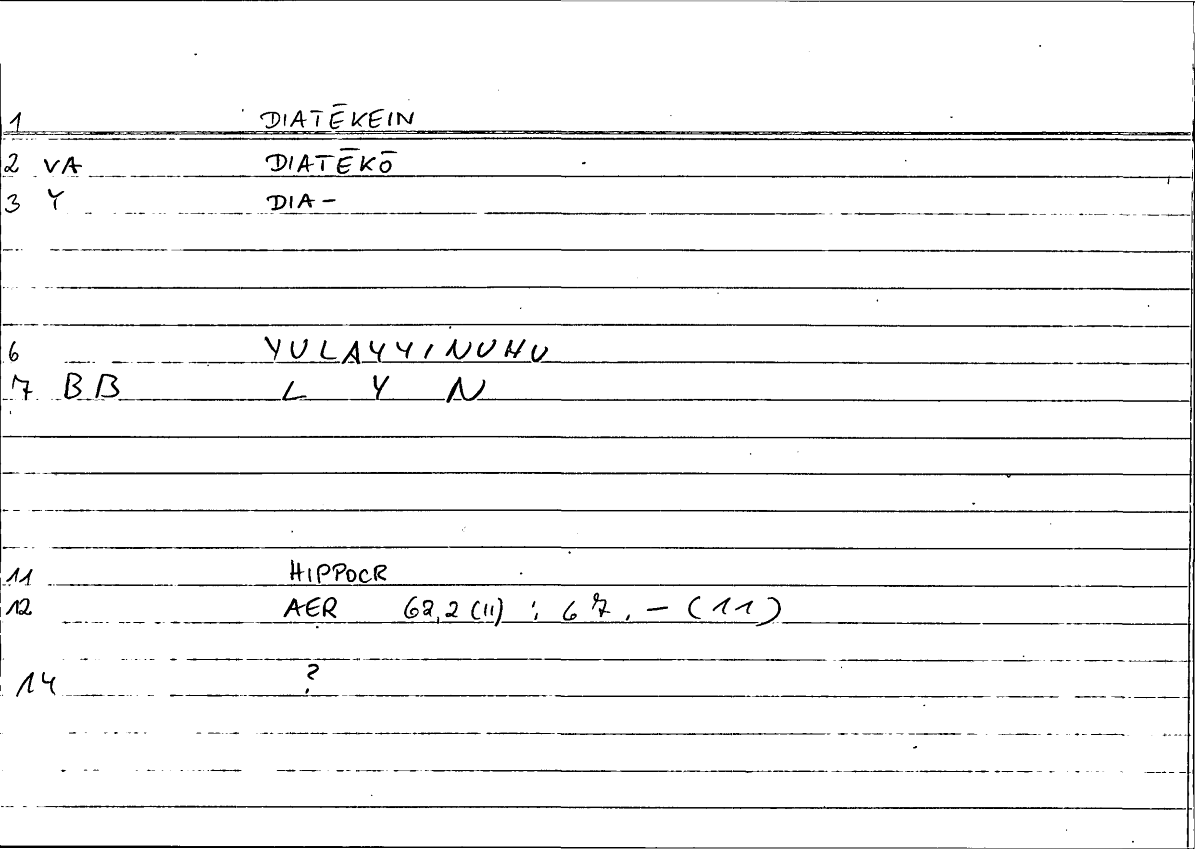 1 DIATĒKEIN
2 VA DIATĒKŌ
3 Y DIA-
6 YULAYYINUHU
7 BB L Y N
11 HIPPOCR
12 AER 68,2 (11) ; 67, - (11)
14 ?